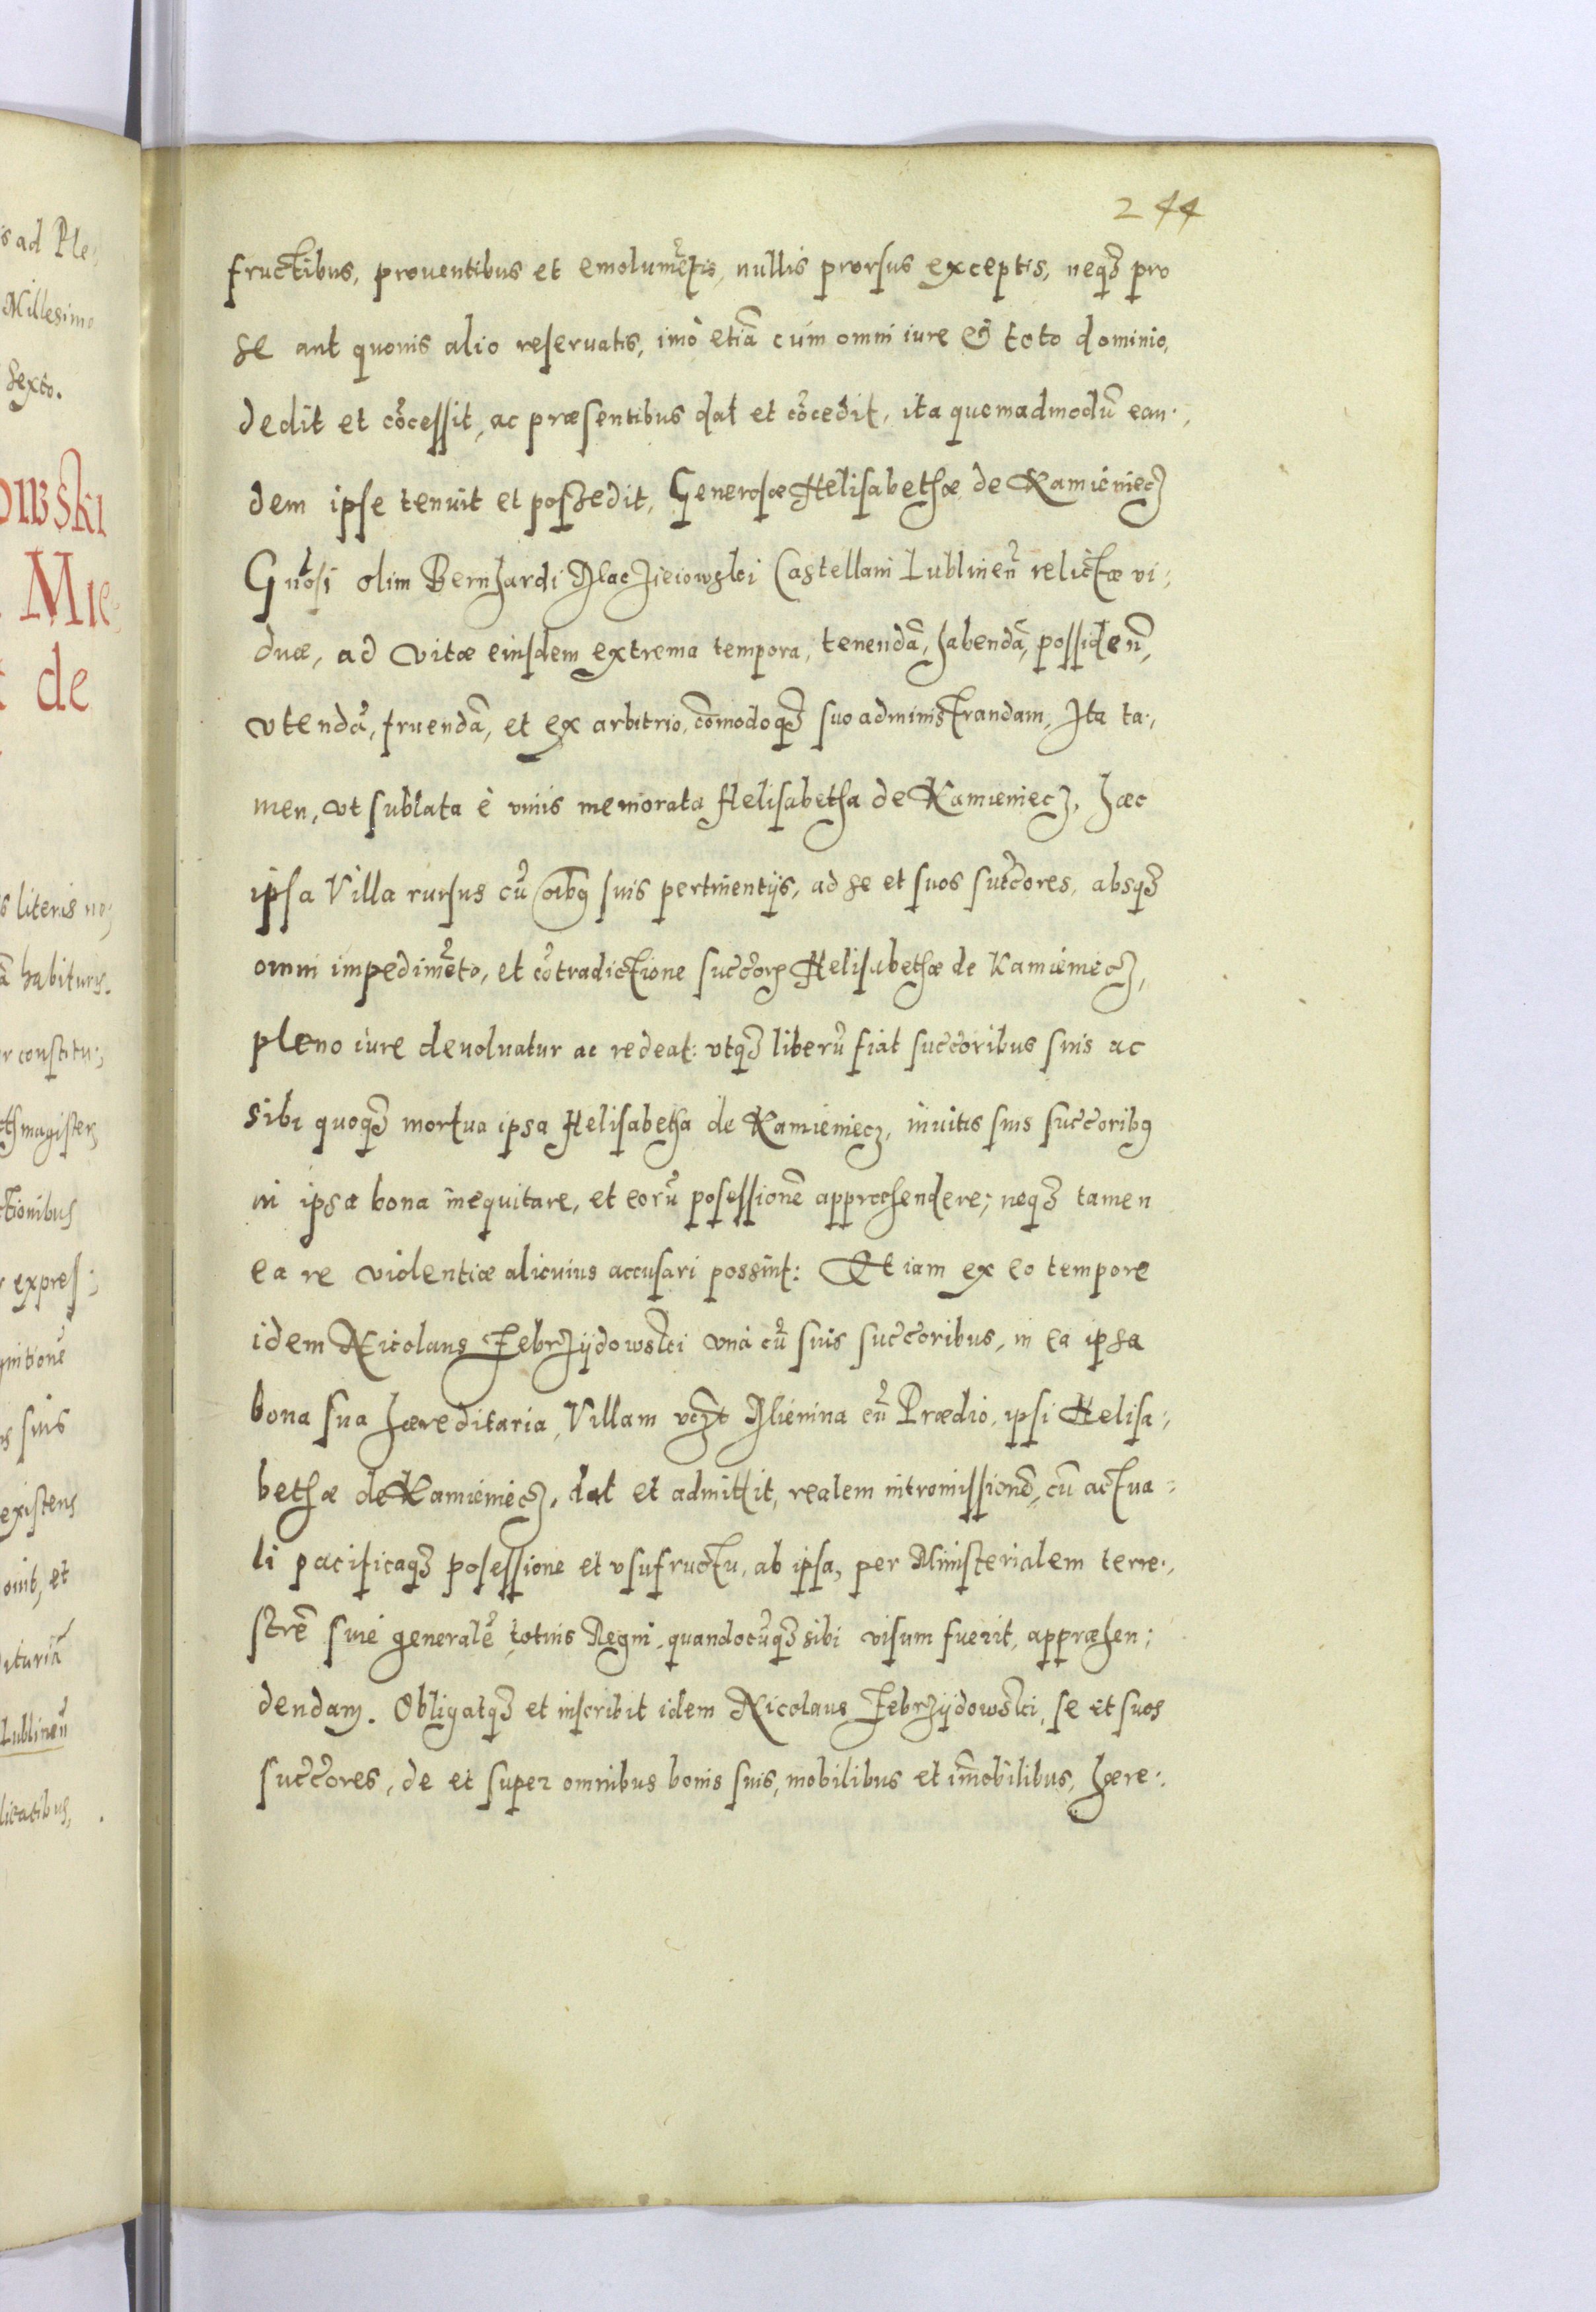 244
fructibus, prouentibus et emolumẽtis, nullis prorsus exceptis, neq3 pro
se aut quouis alio reseruatis, imò etiã cùm omni iure & toto dominio,
dedit et cõcessit, ac præsentibus dat et cõcedit, ita quemadmodũ ean:,
dem ipse tenuit et possedit, Generosæ Helisabethæ de Kamieniecz
Gnosi olim Bernhardi Macziejowski Castellani Lublineñ relictæ vi;
duæ, ad vitæ eiusdem extrema tempora, tenendã, habendã, possideñ,
vtendã, fruendã, et ex arbitrio, cõmodoq3 suo administrandam, Ita ta:,
men, vt sublata è viuis memorata Helisabetha de Kamieniecz, hæc
ipsa Villa rursus cũ oĩbq suis pertinentijs, ad se et suos succ̃ores, absq3
omni impedimẽto, et cõtradictione succ̃orꝭ Helisabethæ de Kamieniecz,
pleno iure deuoluatur ac redeat: vtq3 liberũ fiat succ̃oribus suis ac
sibi quoq3 mortua ipsa Helisabetha de Kamieniecz, inuitis suis succ̃oribq
in ipsa bona inequitare, et eorũ posessionẽ appræhendere; neq3 tamen
ea re violentiæ alicuius accusari possint: Et iam ex eo tempore
idem Nicolaus Zebrzijdowski vnà cũ suis succ̃oribus, in ea ipsa
bona sua hæreditaria, Villam vcz̃t Mienina cũ Prædio, ipsi Helisa:,
bethæ de Kamieniecz, dat et admittit, realem intromissionẽ, cũ actua:,
li pacificaq3 posessione et vsufructu, ab ipsa, per Ministerialem terre:,
strẽ siue generalẽ totius Regni, quandocũq3 sibi visum fuerit, appræhen;
dendam. Obligatq3 et inscribit idem Nicolaus Zebrzijdowski, se et suos
succ̃ores, de et super omnibus bonis suis, mobilibus et im̃obilibus, hære:,